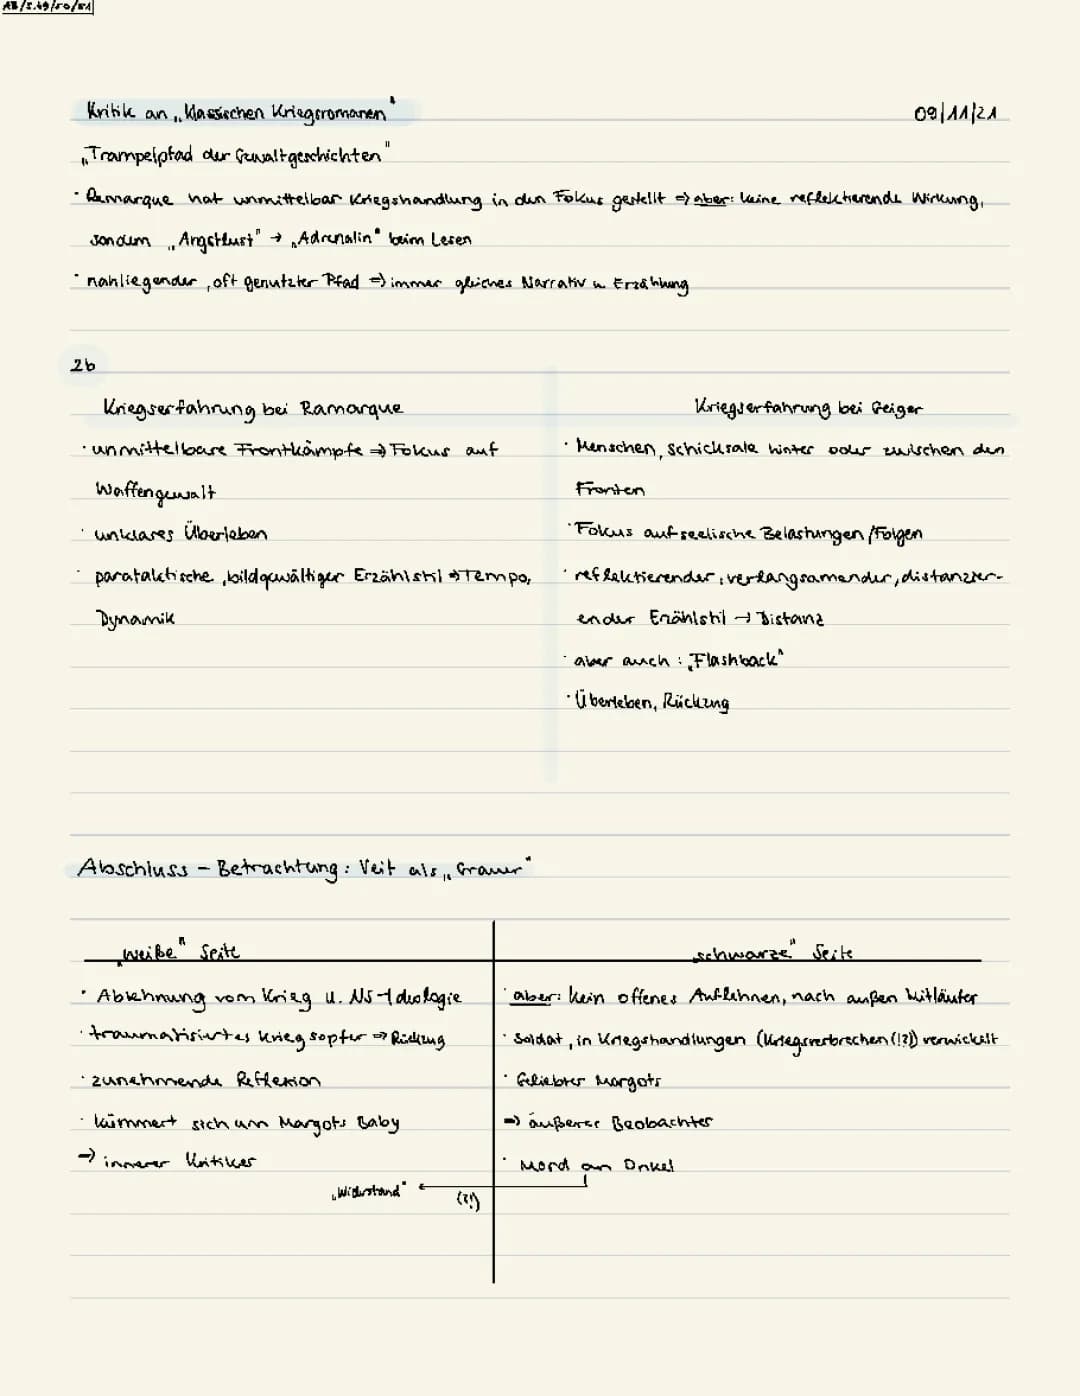 AB/S.49/50/51
Kritik an „klassischen Kriegsromanen"
09/11/21
„Trampelpfad der Gewaltgeschichten"
· Remarque hat unmittelbar Kriegshandlung in den Fokus gestellt => aber: keine reflektierende Wirkung,
sondern „Angstlust" → „Adrenalin" beim Lesen
· nahliegender, oft genutzter Pfad => immer gleiches Narrativ u Erzählung
2b
Kriegserfahrung bei Ramarque
· unmittelbare Frontkämpfe => Fokus auf
Waffengewalt
· unklares Überleben
· parataktische, bildgewältiger Erzählstil => Tempo,
Dynamik
Kriegserfahrung bei Geiger
· Menschen, Schicksale hinter oder zwischen den
Fronten
· Fokus auf seelische Belastungen/Folgen
· reflektierender, verlangsamender, distanzier-
ender Erzählstil → Distanz
· aber auch: „Flashback"
· Überleben, Rückzug
Abschluss - Betrachtung: Veit als „Grauer"
„weiße" Seite
· Ablehnung vom Krieg u. NS-Ideologie
· traumatisiertes Kriegsopfer => Rückzug
· zunehmende Reflexion
· kümmert sich um Margots Baby
→ innerer Kritiker
„Widerstand"
(?!)
„schwarze" Seite
· aber: kein offenes Auflehnen, nach außen Mitläufer
· Soldat, in Kriegshandlungen (Kriegsverbrechen(!?)) verwickelt
· Geliebter Margots
=> äußerer Beobachter
· Mord an Onkel